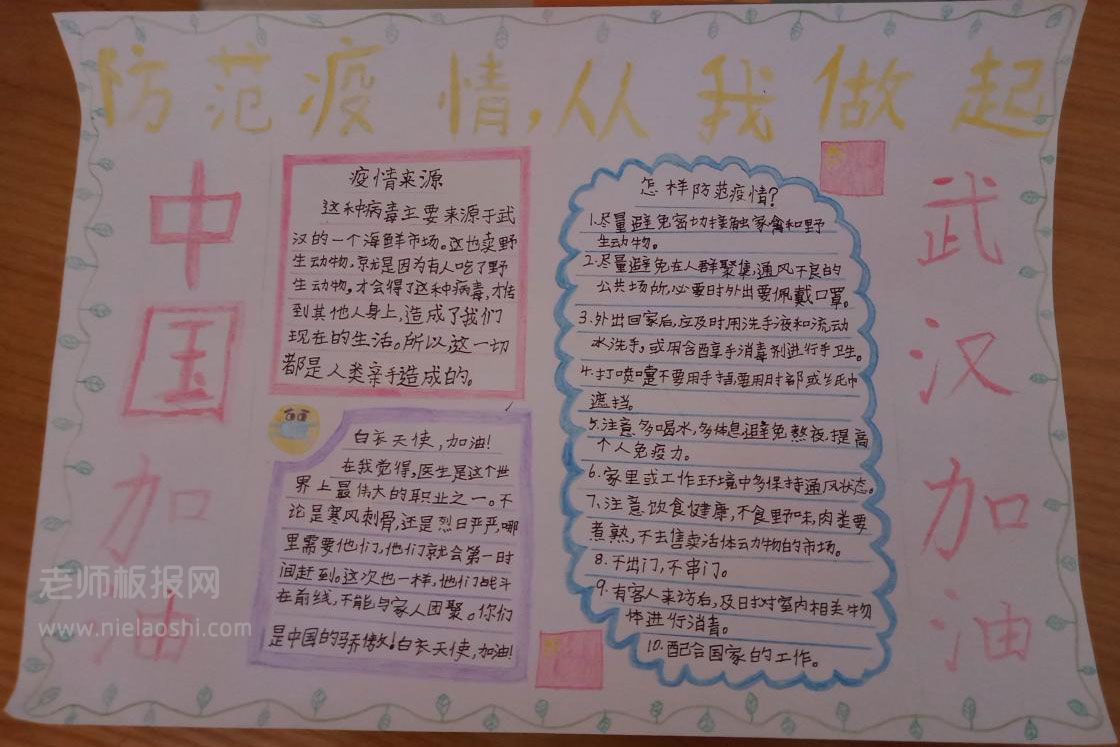 防范疫情,从我做起
中国加油
疫情来源
这种病毒主要来源于武
汉的一个海鲜市场。这也卖野
生动物。就是因为有人吃了野
生动物。才会得了这种病毒,才传
到其他人身上,造成了我们
现在的生活。所以,这一切
都是人类亲手造成的。
白衣天使,加油!
在我觉得,医生是这个世
界上最伟大的职业之一。不
论是寒风刺骨,还是烈日严严,哪
里需要他们,他们就会第一时
间赶到。这次也一样,他们战斗
在前线,不能与家人团聚。你们
是中国的骄傲!白衣天使,加油!
怎样防范疫情?
1.尽量避免密切接触家禽和野
生动物。
2.尽量避免在人群聚集,通风不良的
公共场所,必要时外出要佩戴口罩。
3.外出回家后,应及时用洗手液和流动
水洗手,或用含醇手消毒剂进行手卫生。
4.打喷嚏不要用手捂,要用肘部或纸巾
遮挡。
5.注意多喝水,多休息,避免熬夜,提高
个人免疫力。
6.家里或工作环境中多保持通风状态。
7.注意饮食健康,不食野味,肉类要
煮熟,不去售卖活体动物的市场。
8.不出门,不串门。
9.有客人来访后,及时对室内相关物
体进行消毒。
10.配合国家的工作。
武汉加油
老师板报网
www.nielaoshi.com